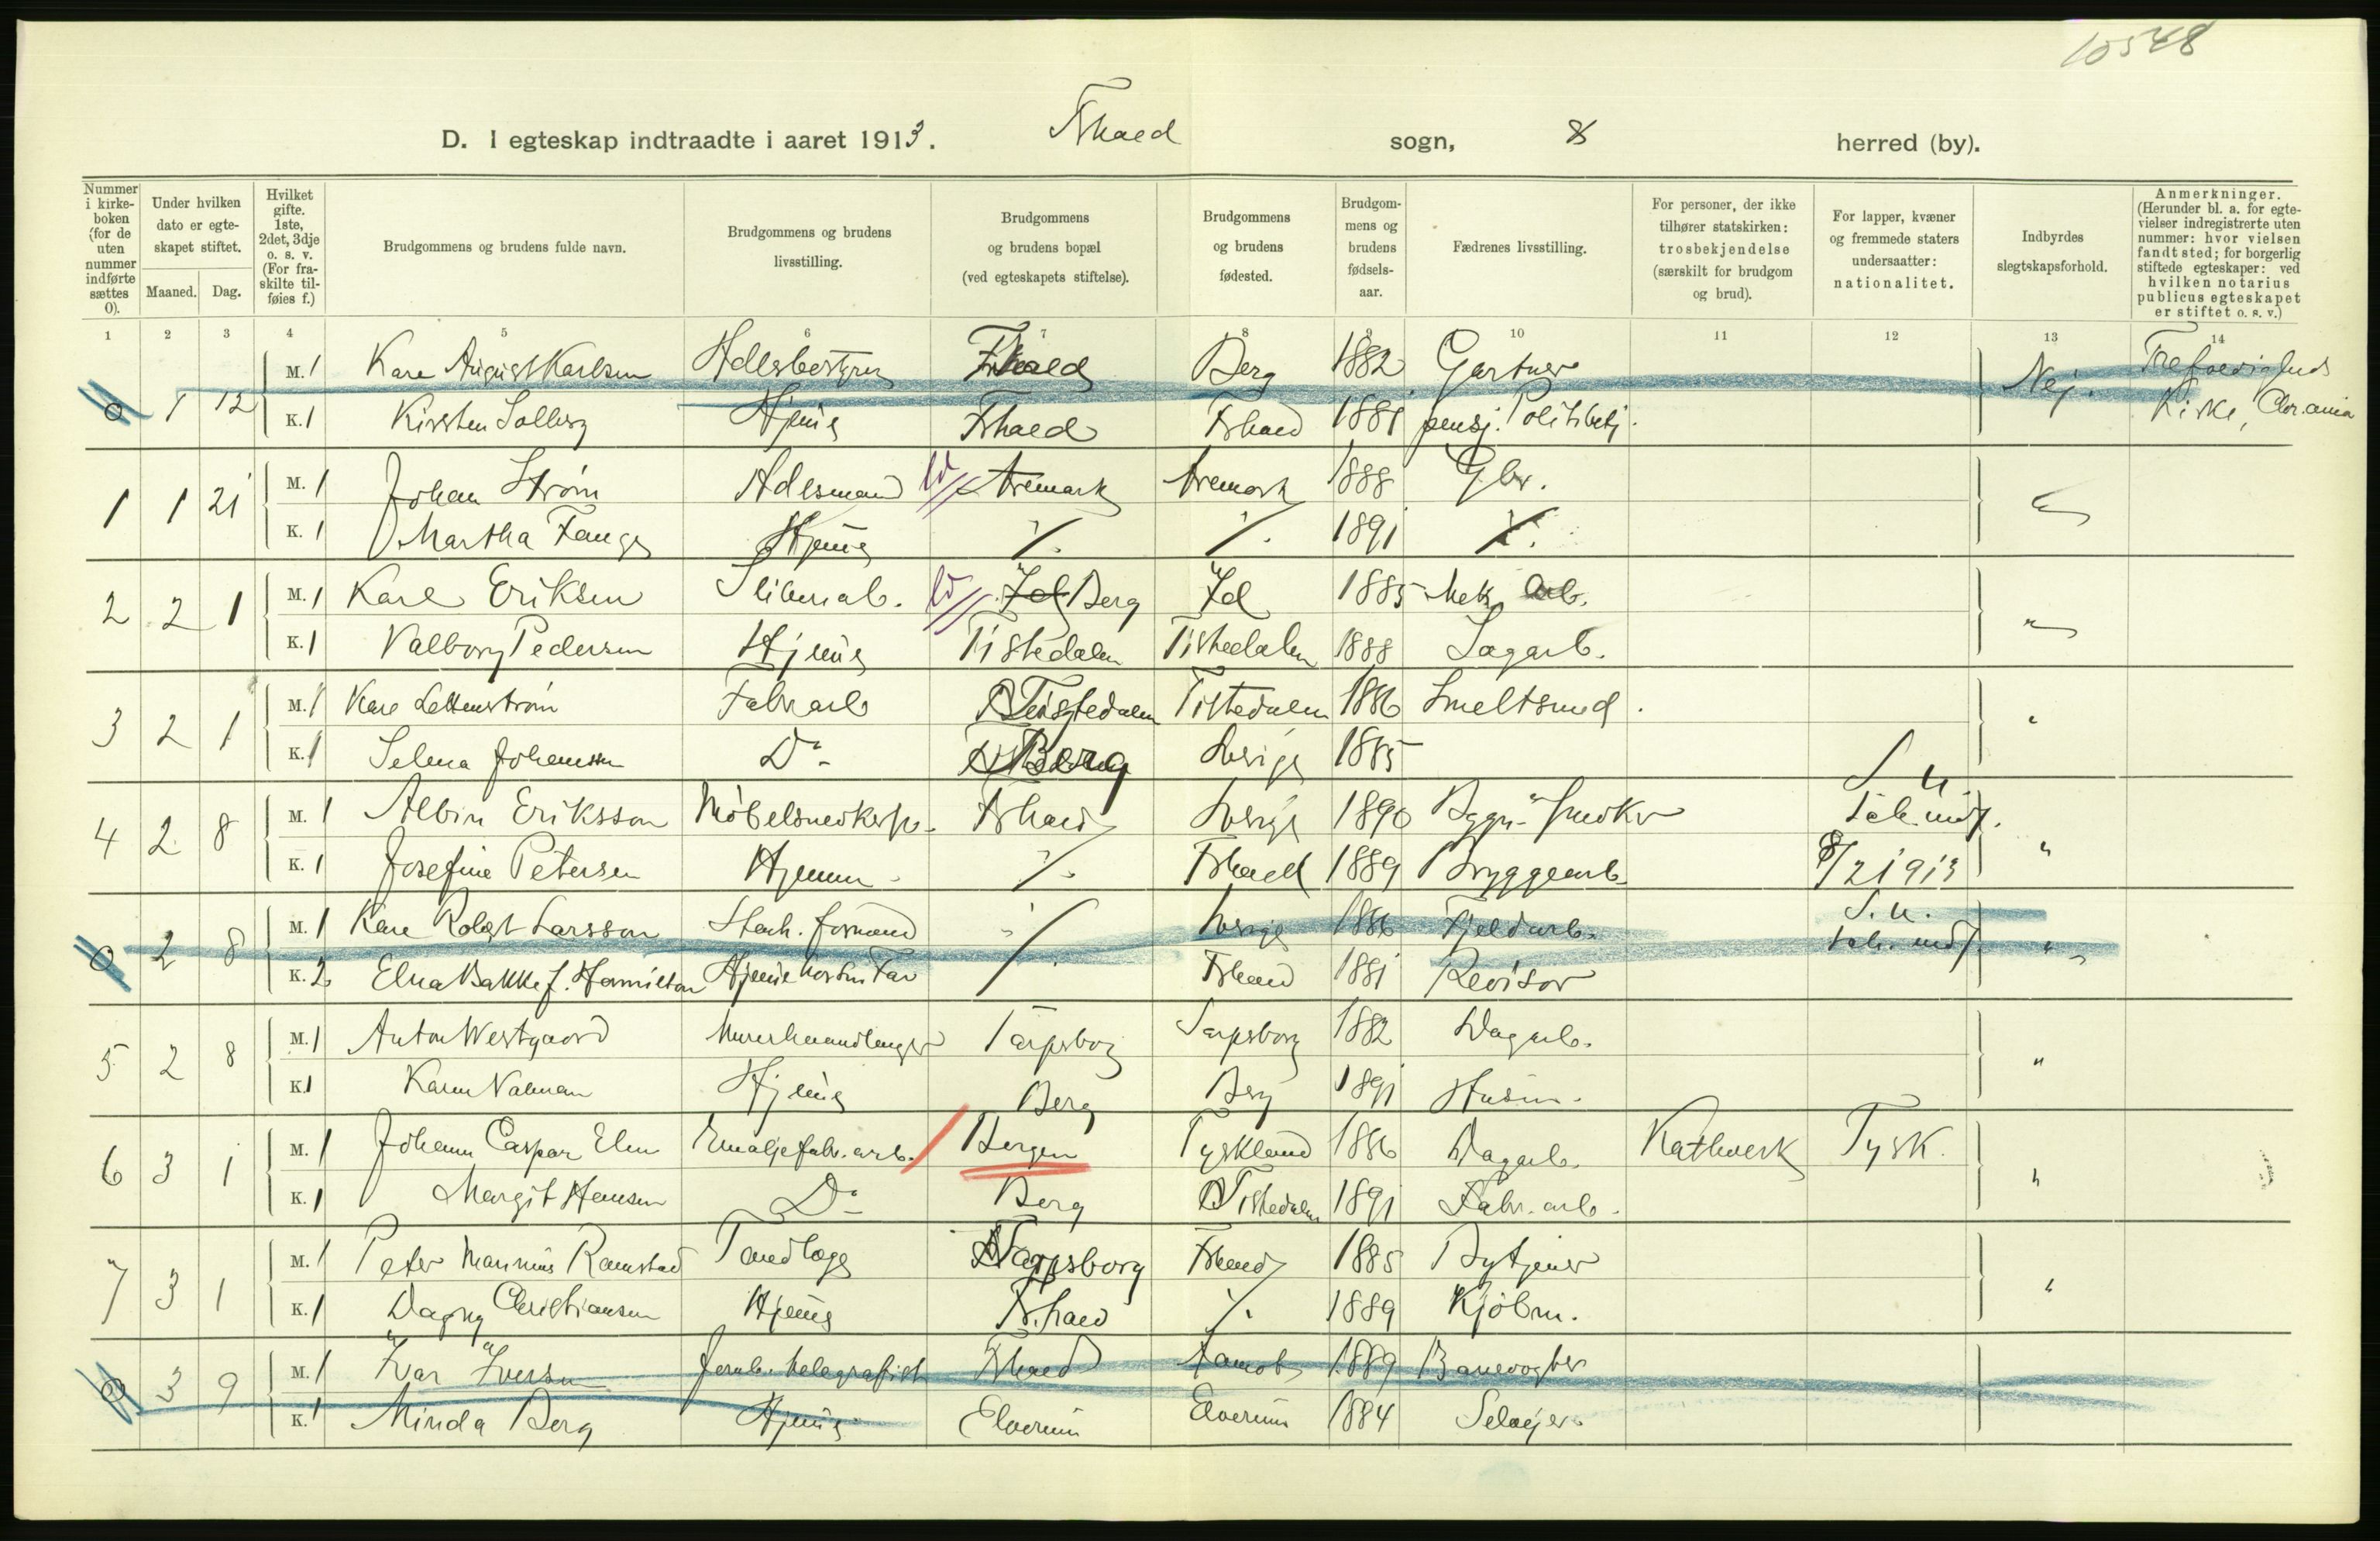 10548
D. I egteskap indtraadte i aaret 1913. Fhald sogn, herred (by).
Nummer i kirkeboken (for de uten nummer indførte sættes 0).
Under hvilken dato er egteskapet stiftet.
Maaned. Dag.
Hvilket gifte. 1ste, 2det, 3dje o. s. v. (For fraskilte tilføies f.)
Brudgommens og brudens fulde navn.
Brudgommens og brudens livsstilling.
Brudgommens og brudens bopæl (ved egteskapets stiftelse).
Brudgommens og brudens fødested.
Brudgommens og brudens fødselsaar.
Fædrenes livsstilling.
For personer, der ikke tilhører statskirken: trosbekjendelse (særskilt for brudgom og brud).
For lapper, kvæner og fremmede staters undersaatter: nationalitet.
Indbyrdes slegtskapsforhold.
Anmerkninger. (Herunder bl. a. for egtevielser indregistrerte uten nummer: hvor vielsen fandt sted; for borgerlig stiftede egteskaper: ved hvilken notarius publicus egteskapet er stiftet o. s. v.)
1 2 3 4 5 6 7 8 9 10 11 12 13 14
M. 1 Karl August Karlsen Fhald Berg 1882 Gartner Nej.
0 1 12 K. 1 Kirsten Solberg Hjem Fhald Fhald 1881 pensj. Politibetj.
1 1 21 M. 1 Johan Strøm Aremark Aremark 1888 Gbr. "
K. 1 Martha Fange Hjem ./. ./. 1891 ./.
2 2 1 M. 1 Karl Eriksen Sliberiarb. Id Berg Id 1885 Mek. arb. "
K. 1 Valborg Pedersen Hjem Tistedalen Tistedalen 1888 Sagarb.
3 2 1 M. 1 Karl Fabr arb Tistedalen Tistedalen 1886 "
K. 1 Selma Johansson Do Berg Sverige 1885
4 2 8 M. 1 Albin Eriksson Møbelsnedker Fhald Sverige 1890 Bygn. Snedker S. U. "
K. 1 Josefine Petersen Hjemm. ./. Fhald 1889 Bryggearb. 8/2 1913
0 2 8 M. 1 Karl Robert Larsson Stenh. formand ./. Sverige 1886 Fjeldarb. S. U. "
K. 2 Elna Bakke f. Hamilton Hjemme hos sin Far Fhald 1881 Revisor
5 2 8 M. 1 Anton Westgaard Murerhaandlanger Sarpsborg Sarpsborg 1882 Dagarb. "
K. 1 Karen Hjem Berg Berg 1891 Husm.
6 3 1 M. 1 Johann Caspar Elm Emaljefabr. arb. Bergen Tyskland 1886 Dagarb. Kathoersk Tysk. "
K. 1 Margit Hansen Do Berg Tistedalen 1891 Fabr. arb.
7 3 1 M. 1 Peter Marinius Ramstad Tandlæge Sarpsborg Fhald 1885 Bytjener "
K. 1 Dagny Christiansen Hjem Fhald ./. 1889 Kjøbm.
0 3 9 M. 1 Ivar Iversen Jernb. telegrafist Fhald Aamot 1889 Banevogter
K. 1 Minda Berg Hjem Elverum Elverum 1884 Selvejer